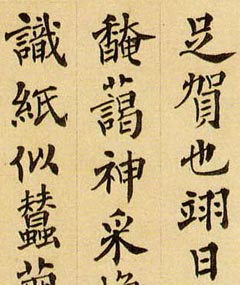 足賀也翊日
馣藹神采
識紙似蠶